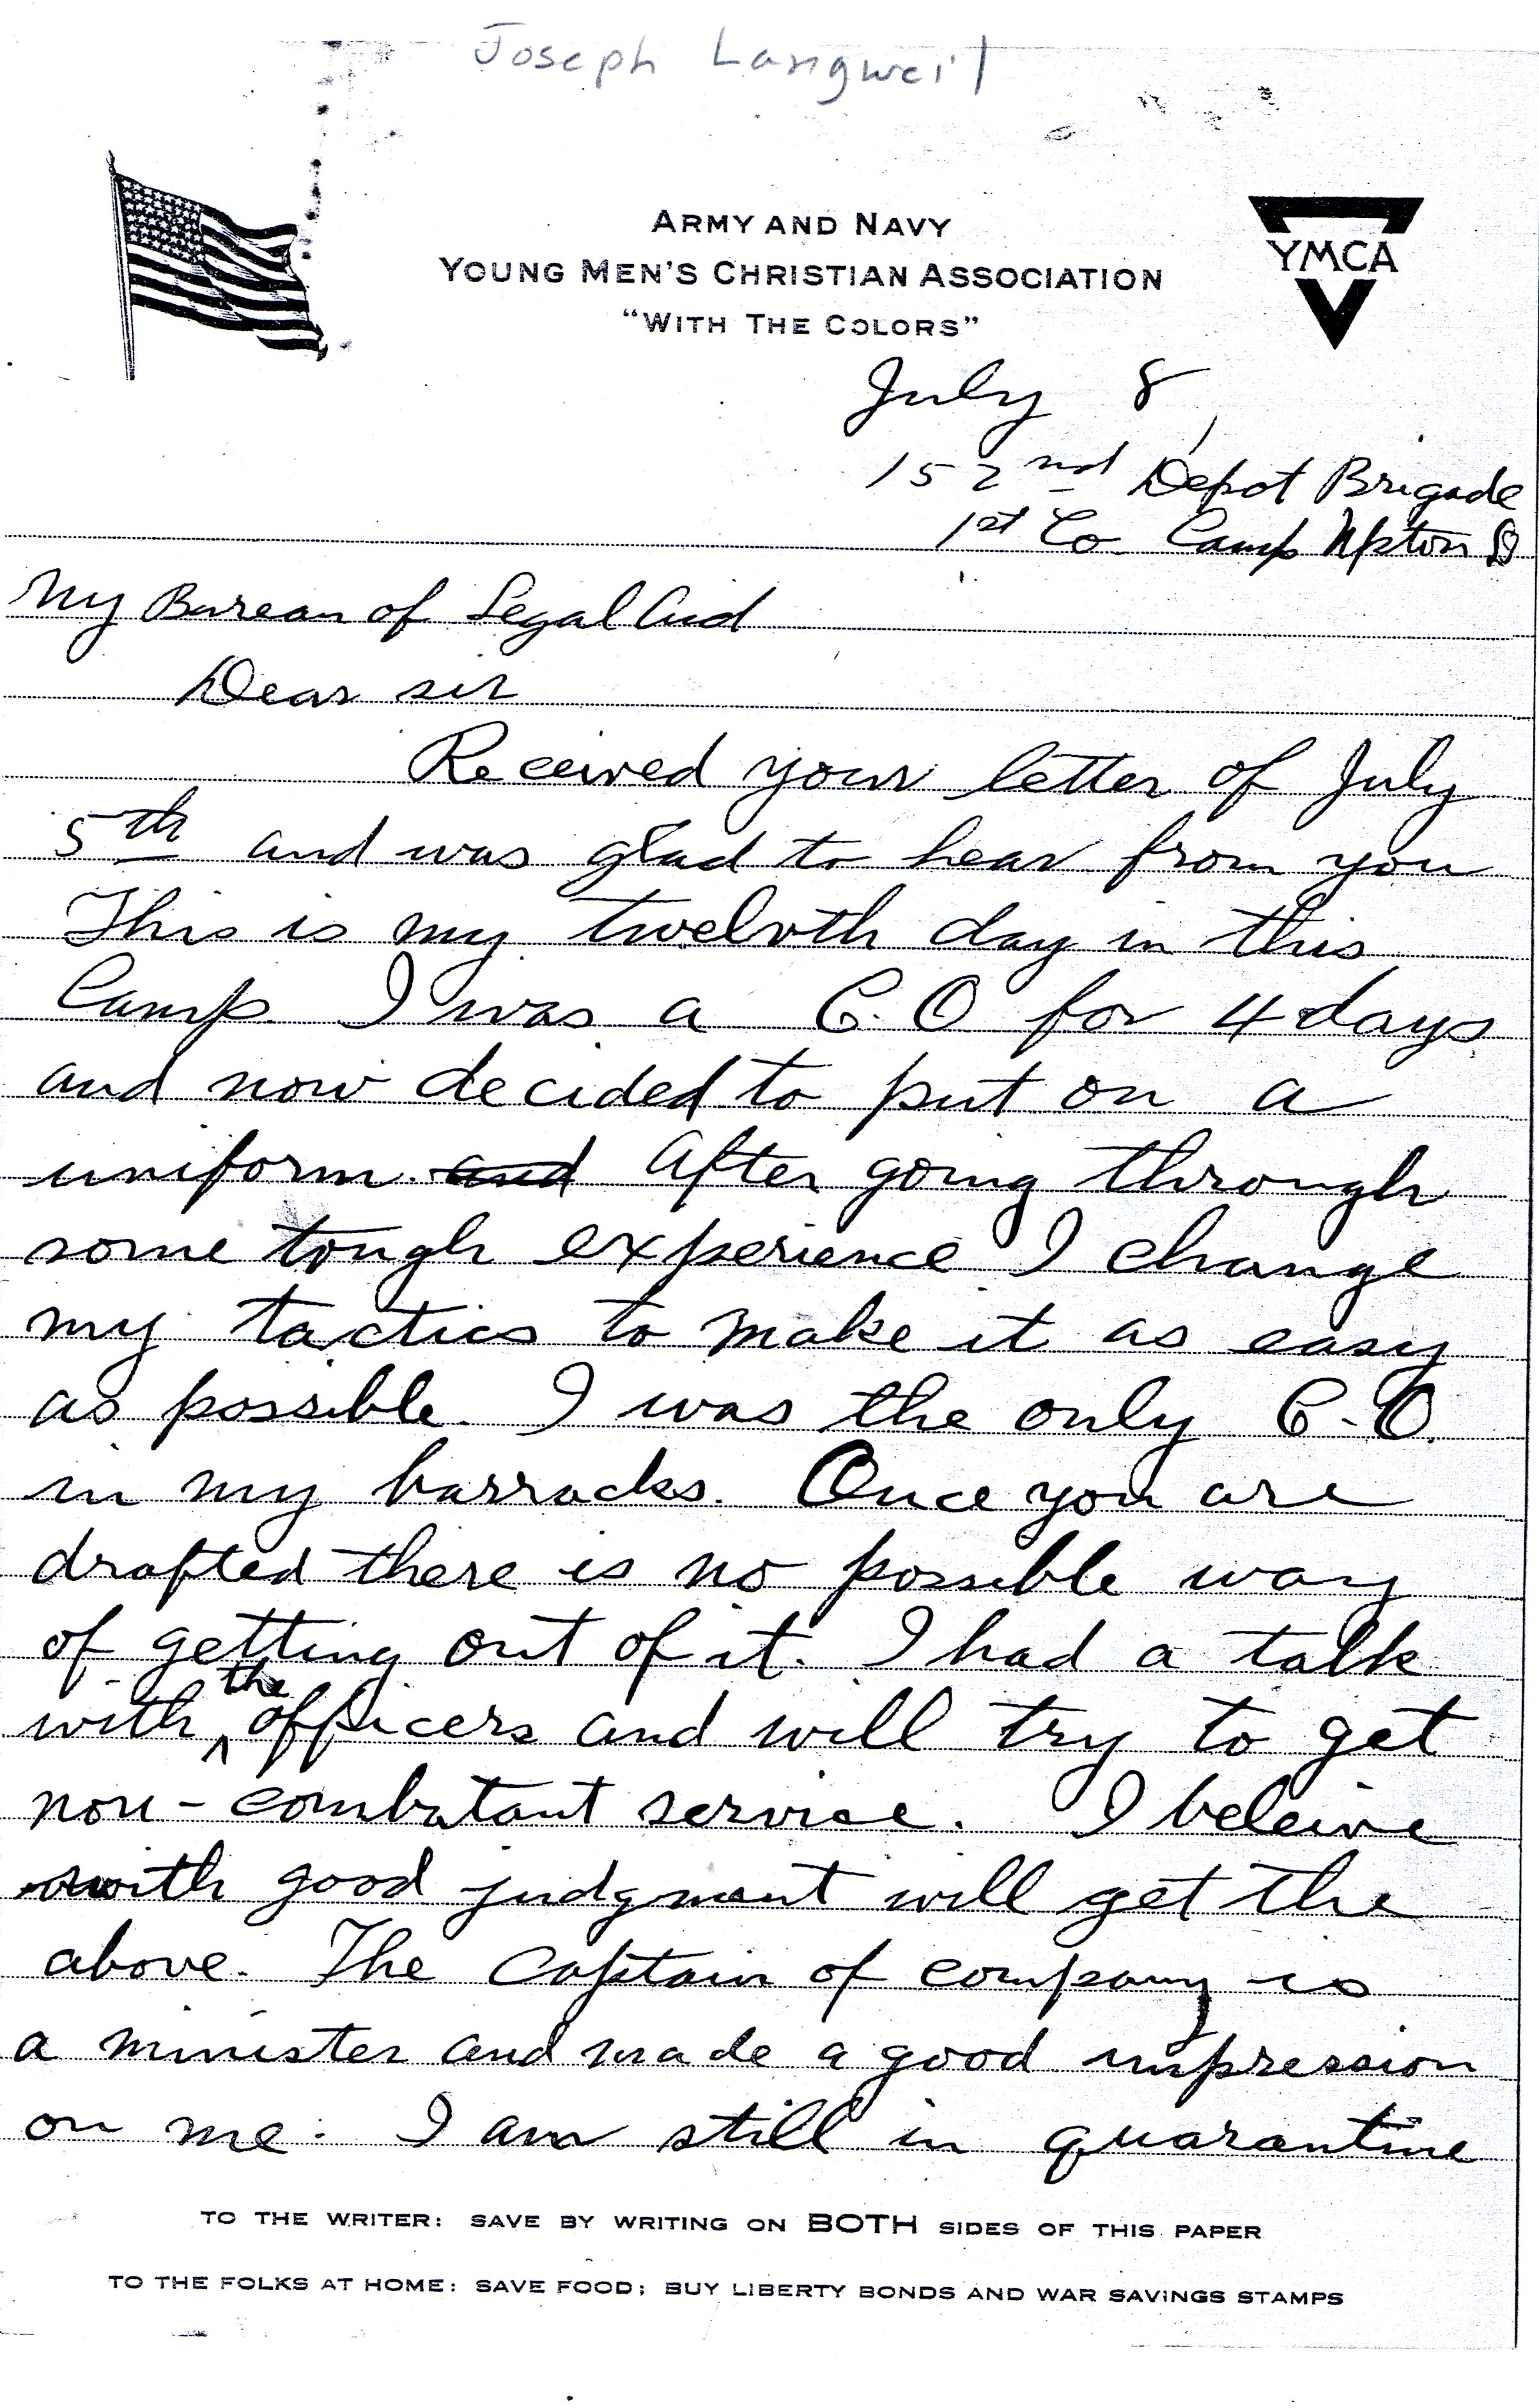 Joseph Langweil
ARMY AND NAVY
YOUNG MEN'S CHRISTIAN ASSOCIATION
"WITH THE COLORS"
YMCA
July 8,
152nd Depot Brigade
1st Co Camp Upton
NY Bureau of Legal Aid
Dear sir
Received your letter of July
5th and was glad to hear from you
This is my twelvth day in this
Camp. I was a C.O for 4 days
and now decided to put on a
uniform. and After going through
some tough experience I change
my tactics to make it as easy
as possible. I was the only C.O.
in my barracks. Once you are
drafted there is no possible way
of getting out of it. I had a talk
with the officers and will try to get
non-combatant service. I beleive
with good judgment will get the
above. The Captain of company is
a minister and made a good impression
on me. I am still in quarantine
TO THE WRITER: SAVE BY WRITING ON BOTH SIDES OF THIS PAPER
TO THE FOLKS AT HOME: SAVE FOOD; BUY LIBERTY BONDS AND WAR SAVINGS STAMPS